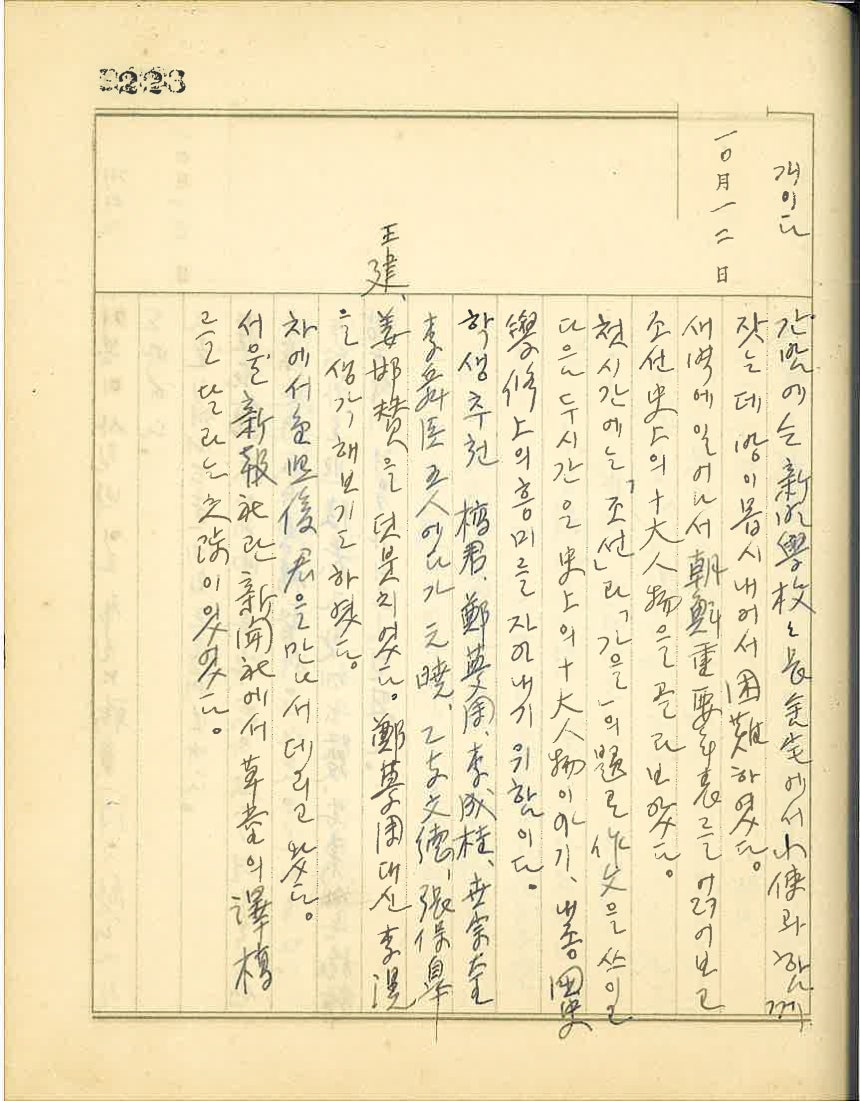 개이다
一０月一二日
간밤에는 新明學校長 金宅에서 小使와 함께
잣는데 방이 몹시 내어서 困難하였다。
새벽에 일어나서 朝鮮重要年表를 읽어보고
조선史上의 十大人物을 골라보았다。
첫시간에는 「조선」과 「가을」의 題로 作文을 쓰이고
다음 두시간은 史上의 十大人物이야기、內容 國史
學修上의 흥미를 자아내기 위함이다。
학생추천 檀君、鄭夢周、李成桂、世宗大王
李舜臣 五人에다가 元曉、乙支文德、張保皐
王建、姜邯贊을 덧붙치였다。鄭夢周대신 李滉
을 생각해보기도 하였다。
차에서 金照俊君을 만나서 데리고 왔다。
서울新報社란 新聞社에서 草堂의 譯稿
를 달라는 交涉이 있었다。